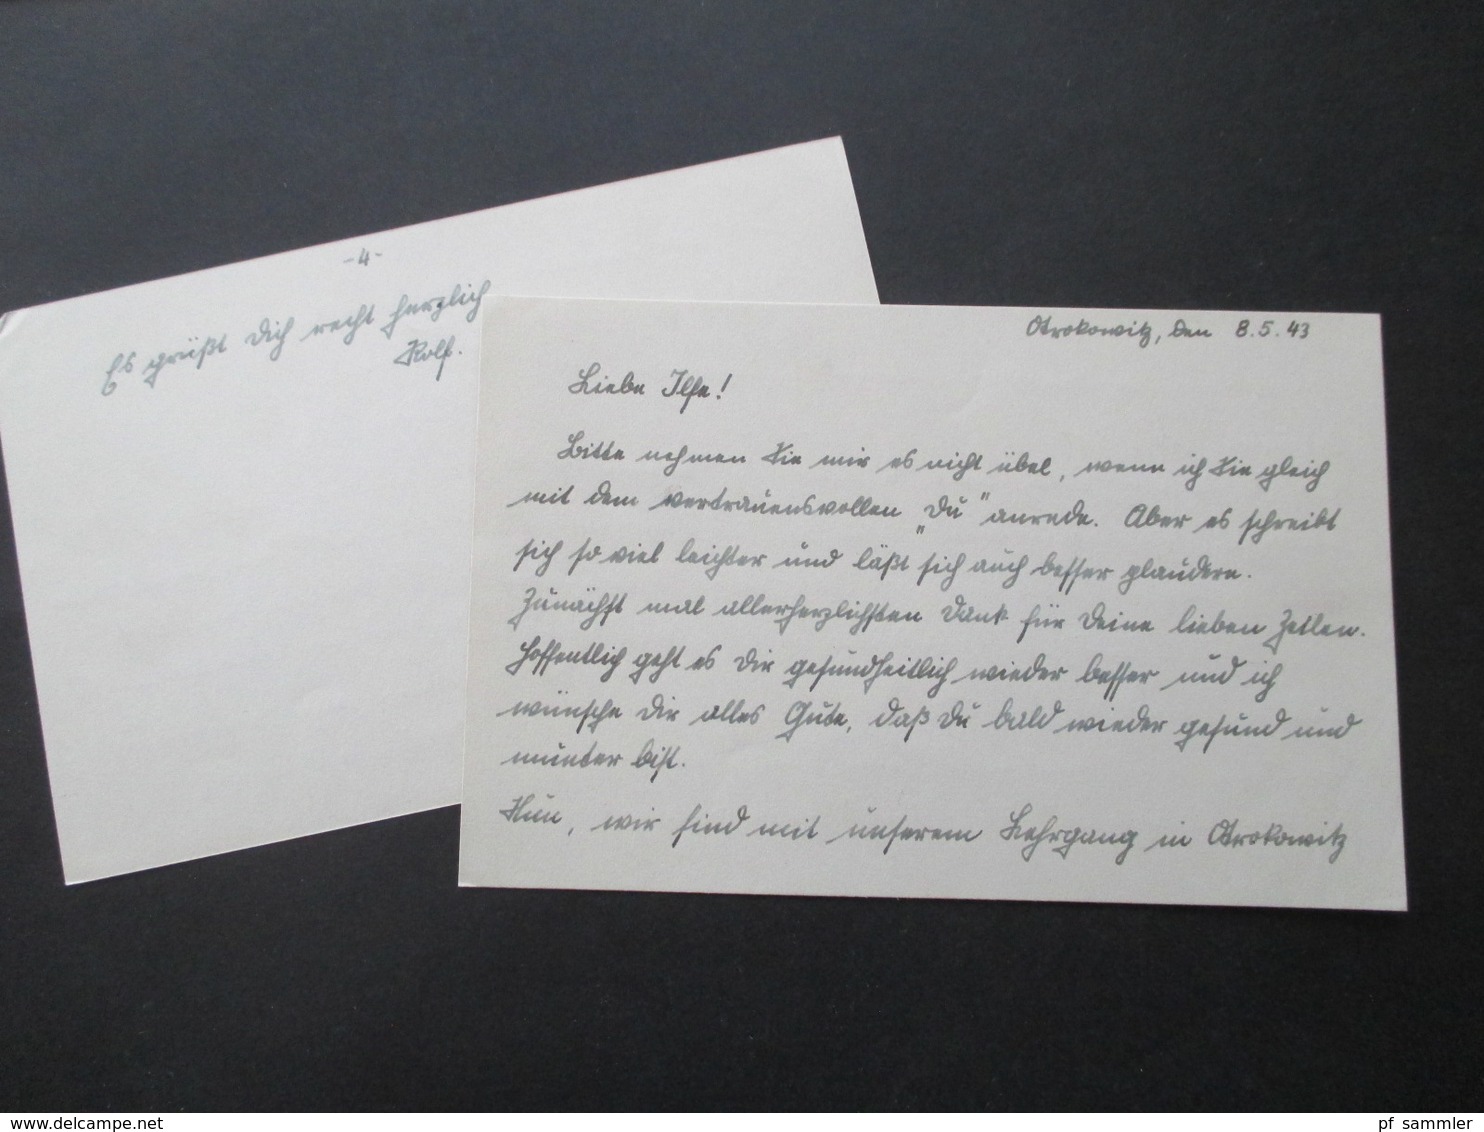 -4-
Es grüßt Dich recht herzlich
Rolf.
Otrokowitz, den 8.5.43
Liebe Ilse!
Bitte nehmen Sie mir es nicht übel, wenn ich Sie gleich
mit dem vertrauensvollen „Du" anrede. Aber es schreibt
sich so viel leichter und läßt sich auch besser plaudern.
Zunächst mal allerherzlichsten Dank für Deine lieben Zeilen.
Hoffentlich geht es Dir gesundheitlich wieder besser und ich
wünsche Dir alles Gute, daß Du bald wieder gesund und
munter bist.
Nun, wir sind mit unserem Lehrgang in Otrokowitz
www.delcampe.net
pf_sammler